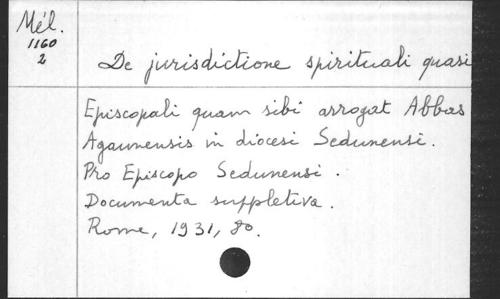 Mél.
1160
2
De jurisdictione spirituali quasi
Episcopali quam sibi arrogat Abbas
Agaunensis in diocesi Sedunensi.
Pro Episcopo Sedunensi.
Documenta suppletiva.
Rome, 1931, 8o.